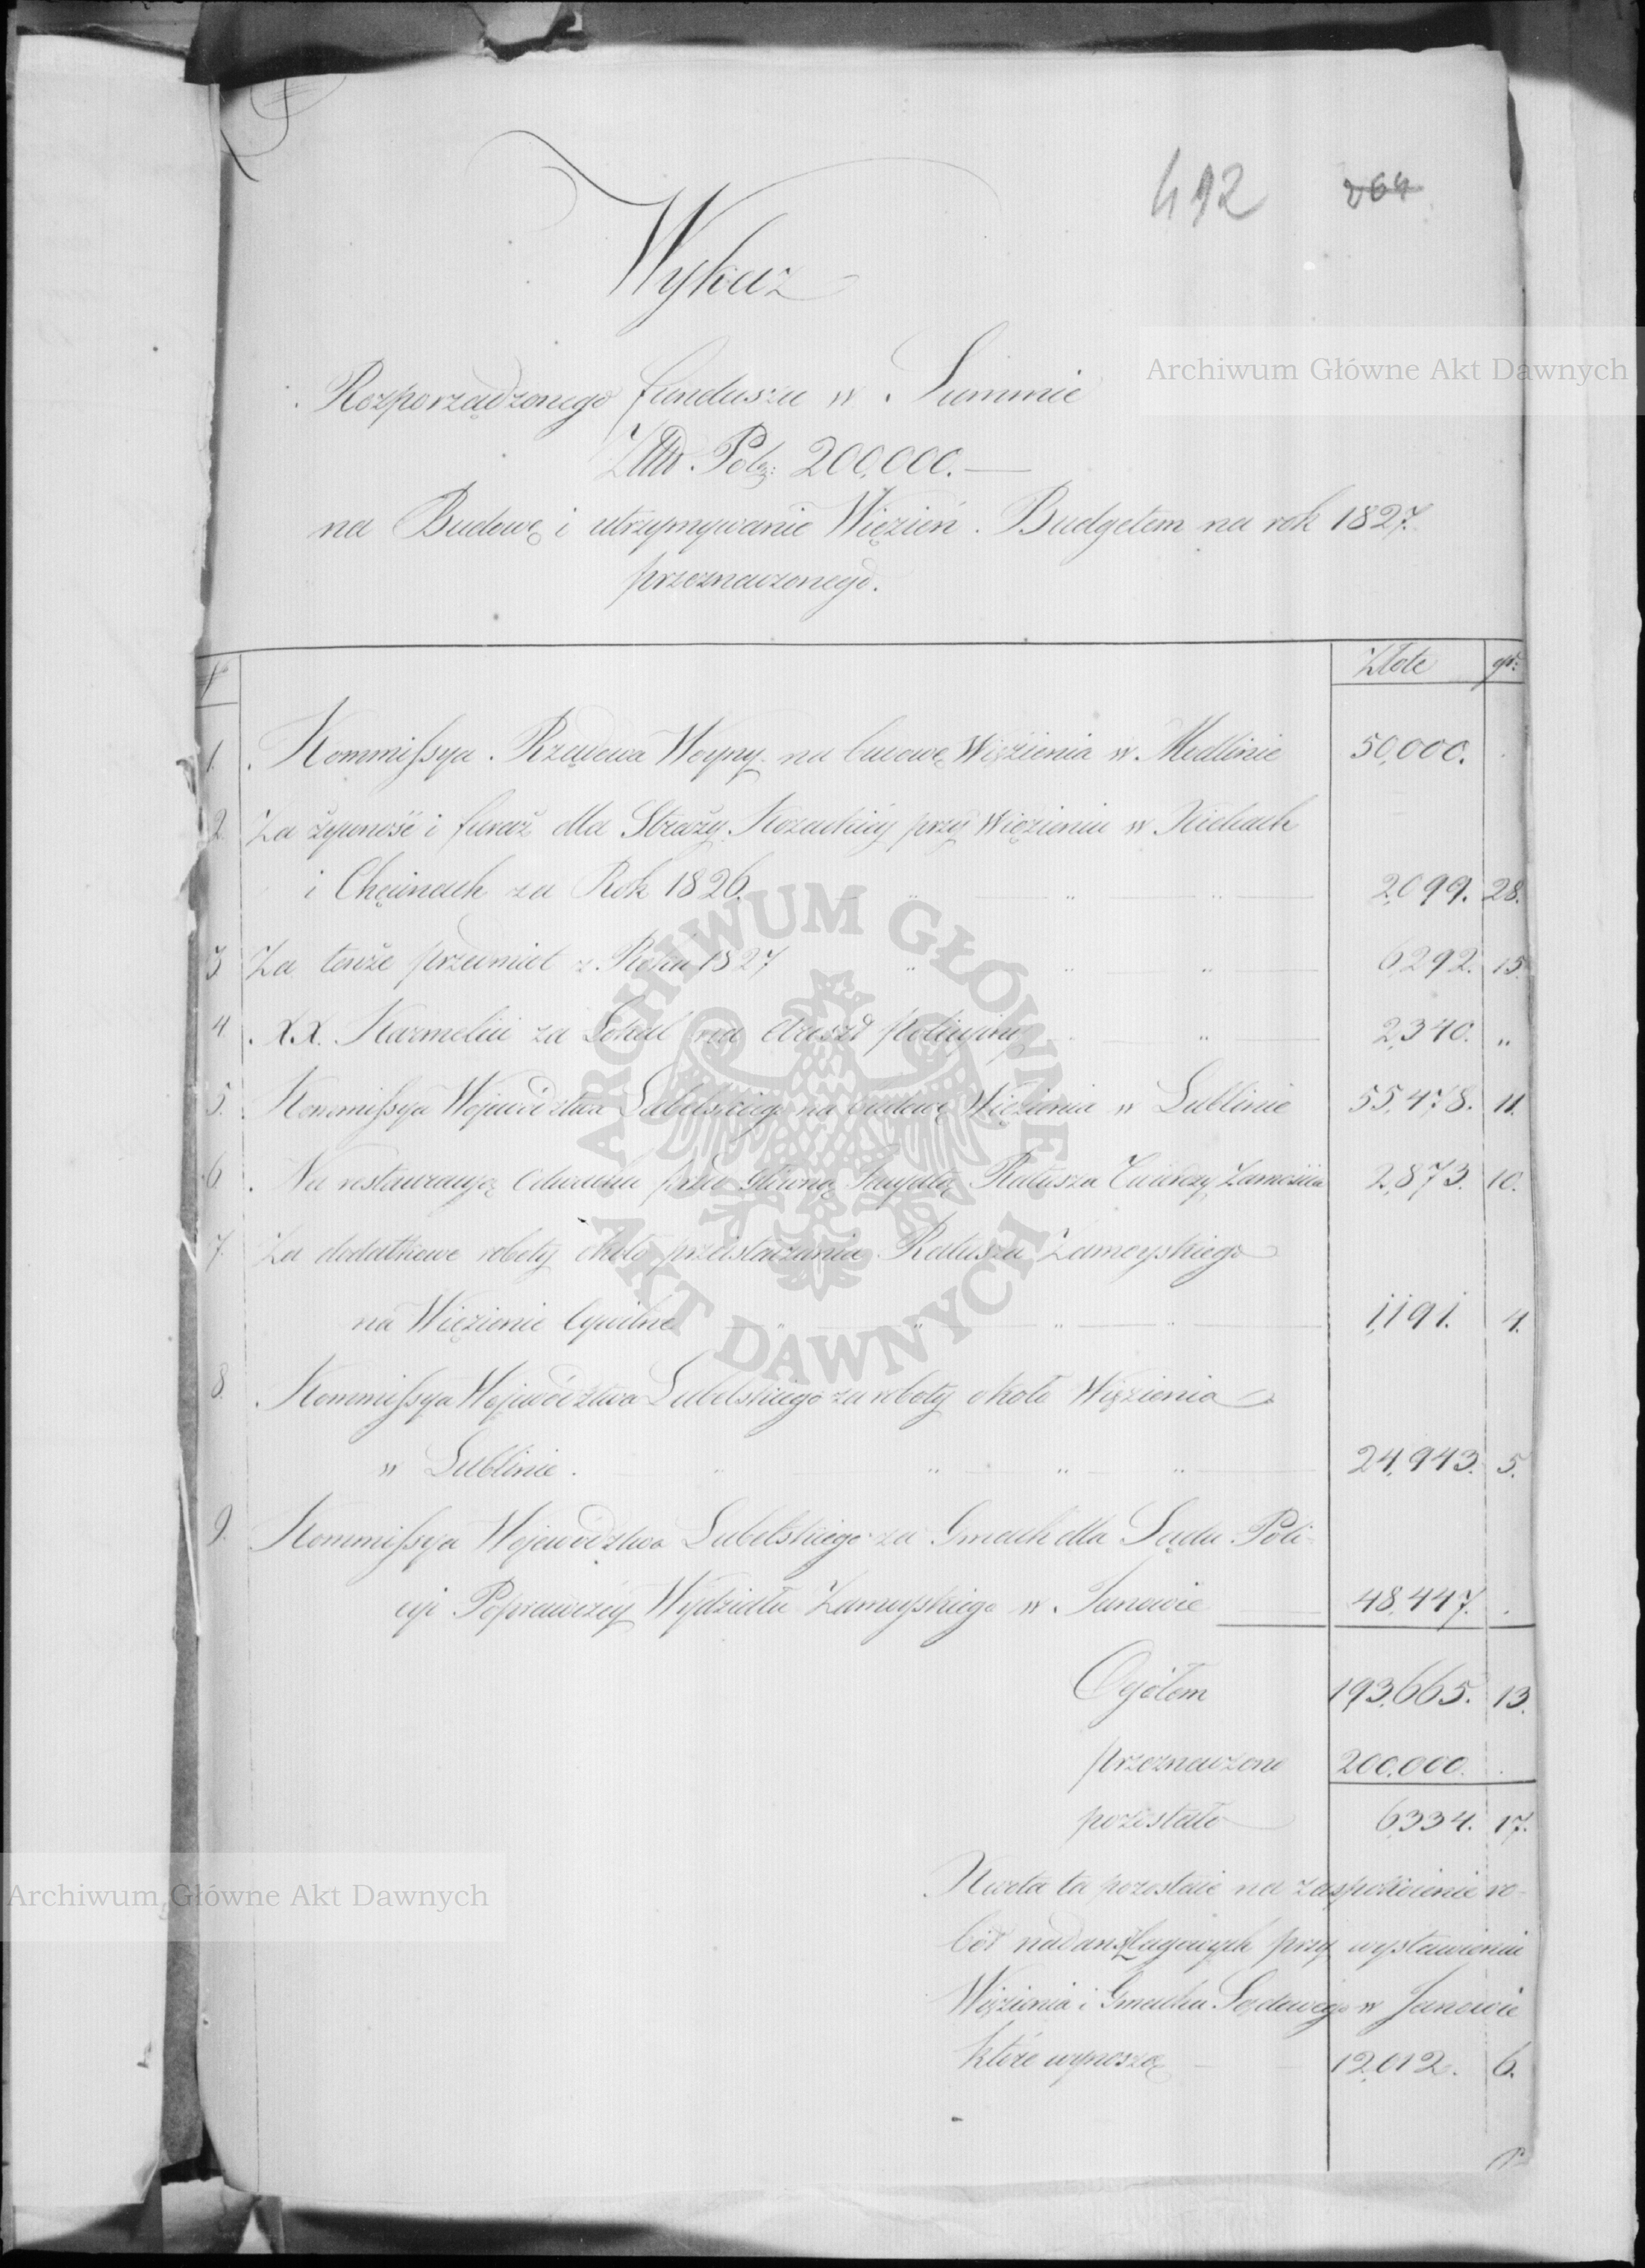 492 264
Wykaz
Rozporządzonego funduszu w Summie
Złłw. Pols: 200,000.—
na Budowę i utrzymywanie Więzień Budgetem na rok 1827.
przeznaczonego.
Złote gr:
1. Kommissya Rządowa Woyny na budowę Więzienia w Modlinie 50,000.
2. Za żywność i furaż dla Straży Kozackiéy przy Więzieniu w Kielcach
i Chęcinach za Rok 1826. 2,099. 28.
3 Za tenże przedmiot z Roku 1827 6,292. 15.
4. XX. Karmelici za Lokal na Areszt policyiny 2,340. „
5. Kommissya Województwa Lubelskiego na budowę Więzienia w Lublinie 55,478. 11.
6. Na restauracyą Odwachu przy Ratusza Twierdzy Zamościa 2,873. 10.
7. Za dodatkowe roboty około przeistaczania Ratusza Zamoyskiego
na Więzienie Cywilne 1,191. 4.
8. Kommissya Województwa Lubelskiego za roboty około Więzienia
w Lublinie. 24,943. 5.
9. Kommissya Województwa Lubelskiego za Gmach dla Sądu Poli-
cyi Poprawczéy Wydziału Zamoyskiego w Janowie 48,447.
Ogółem 193,665. 13.
przeznaczono 200,000.
pozostało 6,334. 17.
Kwota ta pozostaie na zaspokoienie ro-
bót nadanszlagowych przy wystawieniu
Więzienia i Gmachu Sądowego w Janowie
które wynoszą 12,012. 6.
Archiwum Główne Akt Dawnych
Archiwum Główne Akt Dawnych
ARCHIWUM GŁÓWNE AKT DAWNYCH